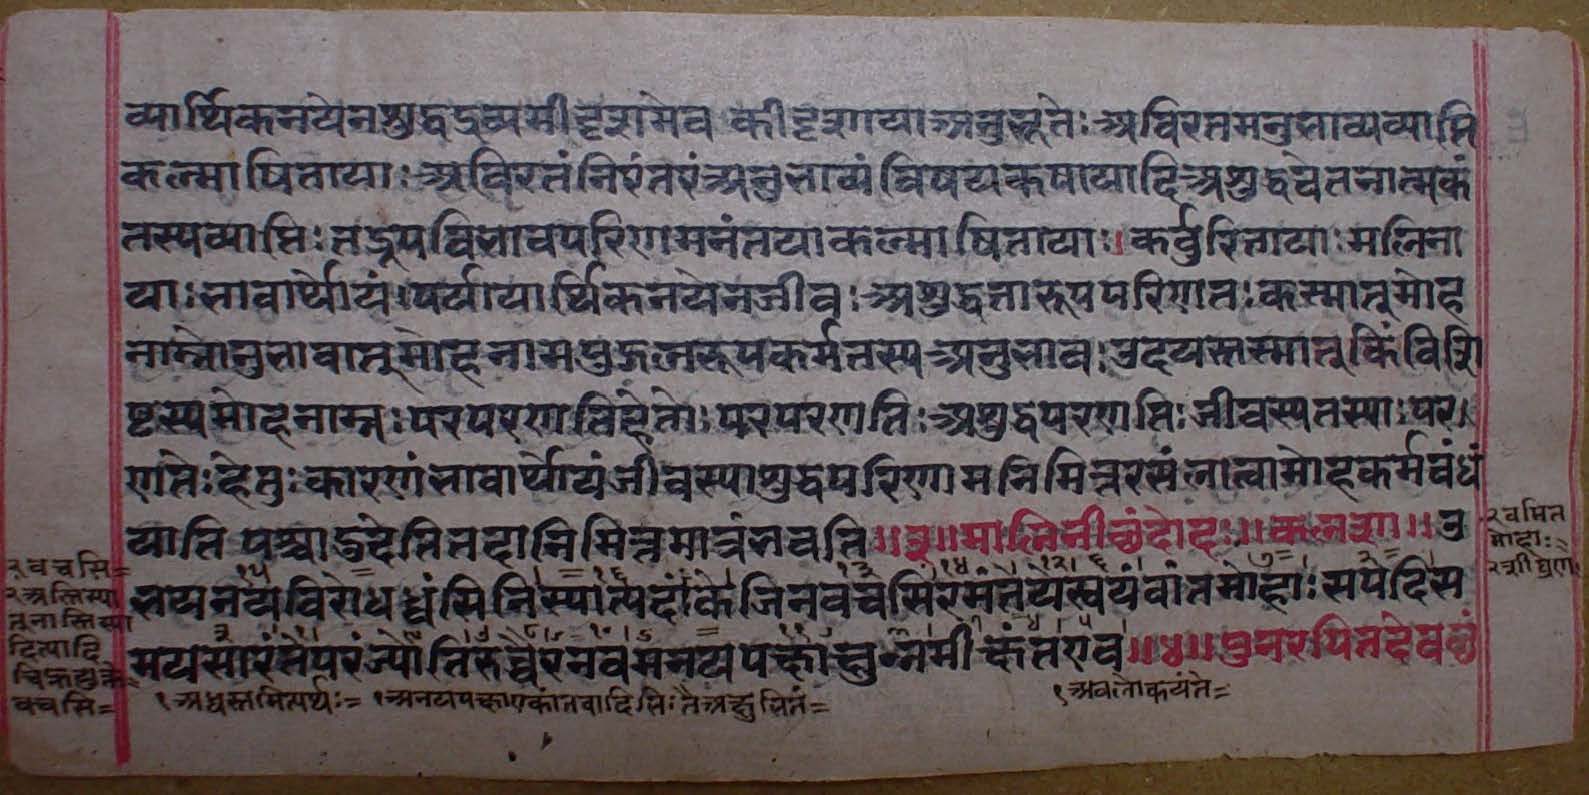 व्यार्थिकनयेनशुद्धद्रव्यमीदृशमेव कीदृशाया अनुभूतेः अविरतमनुभाव्यव्याप्ति
कल्माषितायाः अविरतं निरंतरं अनुभाव्यं विषयकषायादि अशुद्धचेतनात्मकं
तस्यव्याप्तिः तद्रूपविभावपरिणमनंतयाकल्माषितायाः। कर्वुरितायाः मलिना
याः भावार्थोयं।पर्यायार्थिकनयेनजीवः अशुद्धतारूपपरिणतः कस्मात्मोह
नाम्नोनुभावात्मोहनामपुद्गलरूपकर्मतस्य अनुभावः उदयस्तस्मात् किं विशि
ष्टस्यमोहनाम्नः परपरणतिहेतोः परपरणतिः अशुद्धपरणतिः जीवस्यतस्याः पर।
णतेः हेतुः कारणं भावार्थोयं जीवस्याशुद्धपरिणामनिमित्तरसंलात्वामोहकर्मबंधं
याति पश्चादुदेतितदानिमित्तमात्रंभवति॥३॥मालिनीछंदोहः॥कलशा॥उ
भयनयविरोधध्वंसिनिस्यात्पदांकेजिनवचसिरमंतेयेस्वयंवांतमोहाः सपदिस
मयसारंतेपरंज्योतिरुच्चैरनवमनयपक्षाक्षुन्नमीक्षंतएव॥४॥पुनरपितदेवछं
१अध्वस्तमित्यर्थः= १अनयपक्षाएकांतवादिभिः तैअक्षुभितं=
१अवलोकयंते=
२वचसि=
२अस्तिस्या
त्नास्तिस्या
दित्यादि
चिह्नयुक्ते
वचसि=
२वमित
मोहाः=
२शीघ्रेण